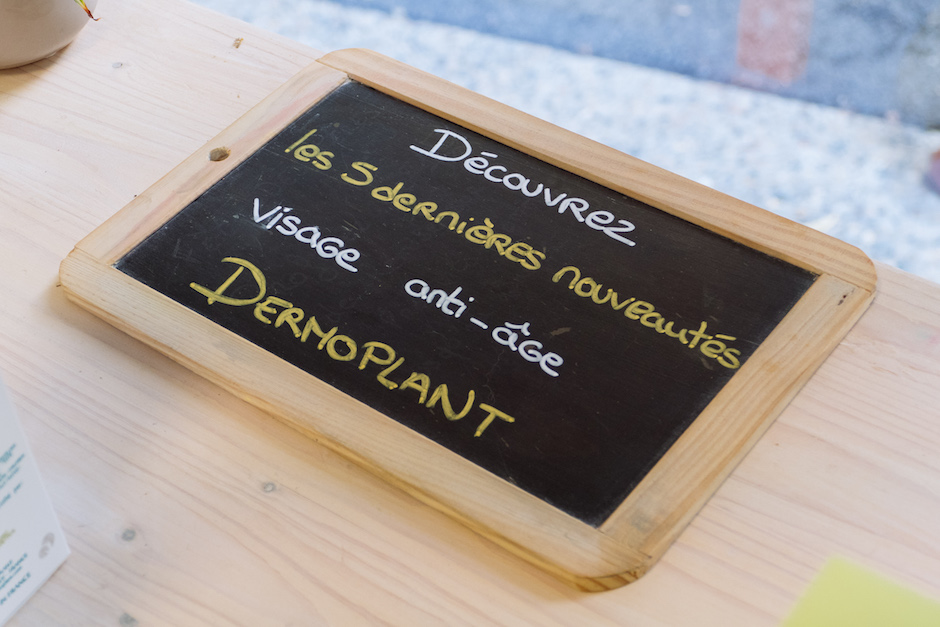 Découvrez
les 5 dernières nouveautés
visage anti-âge
DERMOPLANT
FRANCE